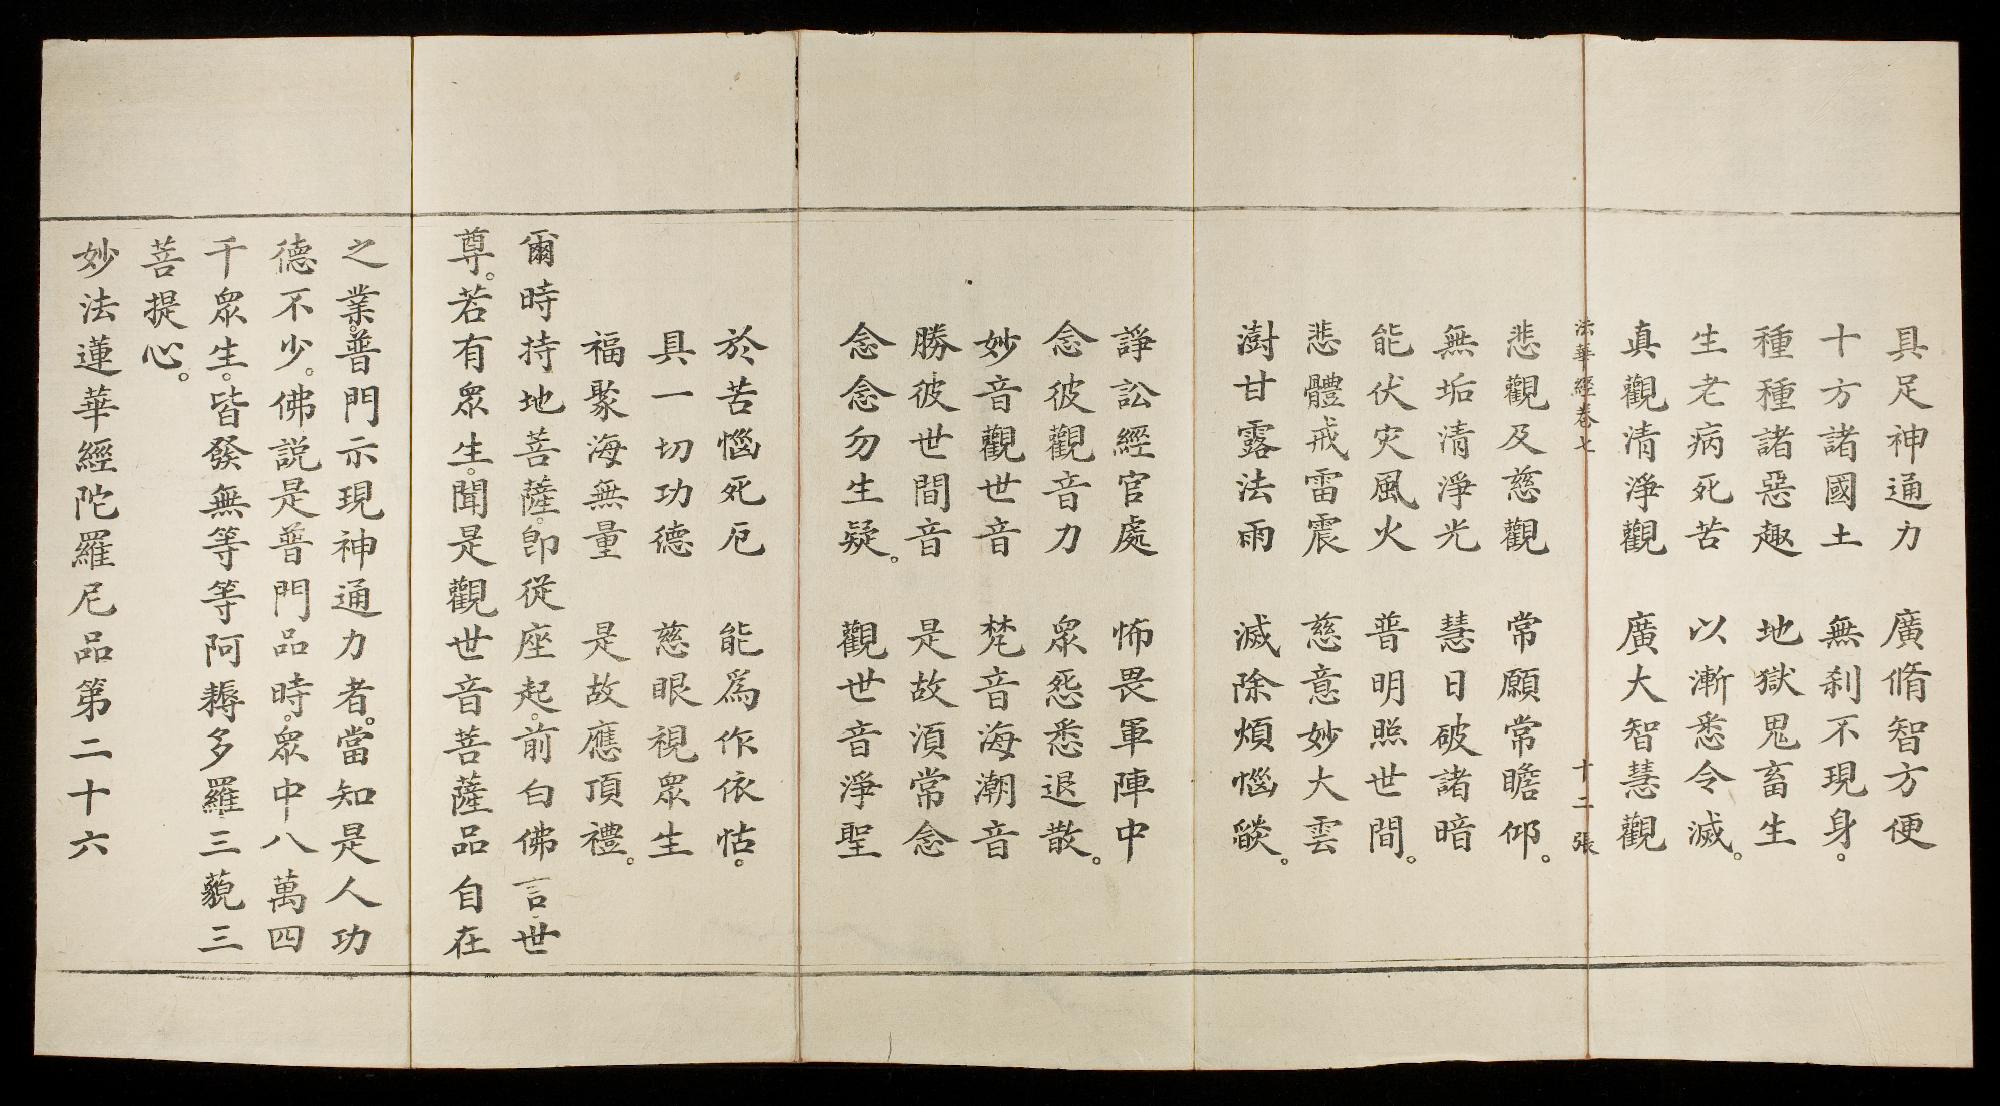 具足神通力　廣脩智方便
十方諸國土　無刹不現身。
種種諸惡趣　地獄鬼畜生
生老病死苦　以漸悉令滅。
真觀清淨觀　廣大智慧觀
法華經卷七　十二張
悲觀及慈觀　常願常瞻仰。
無垢清淨光　慧日破諸暗
能伏灾風火　普明照世間。
悲體戒雷震　慈意妙大雲
澍甘露法雨　滅除煩惱燄。
諍訟經官處　怖畏軍陣中
念彼觀音力　眾怨悉退散。
妙音觀世音　梵音海潮音
勝彼世間音　是故須常念
念念勿生疑。　觀世音淨聖
於苦惱死厄　能爲作依怙。
具一切功德　慈眼視眾生
福聚海無量　是故應頂禮。
爾時持地菩薩。即從座起。前白佛言。世
尊。若有眾生。聞是觀世音菩薩品自在
之業。普門示現神通力者。當知是人功
德不少。佛説是普門品時。眾中八萬四
千眾生。皆發無等等阿耨多羅三藐三
菩提心。
妙法蓮華經陀羅尼品第二十六